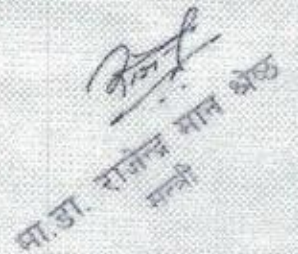 मा. डा. राजेन्द्र मान श्रेष्ठ
मन्त्री